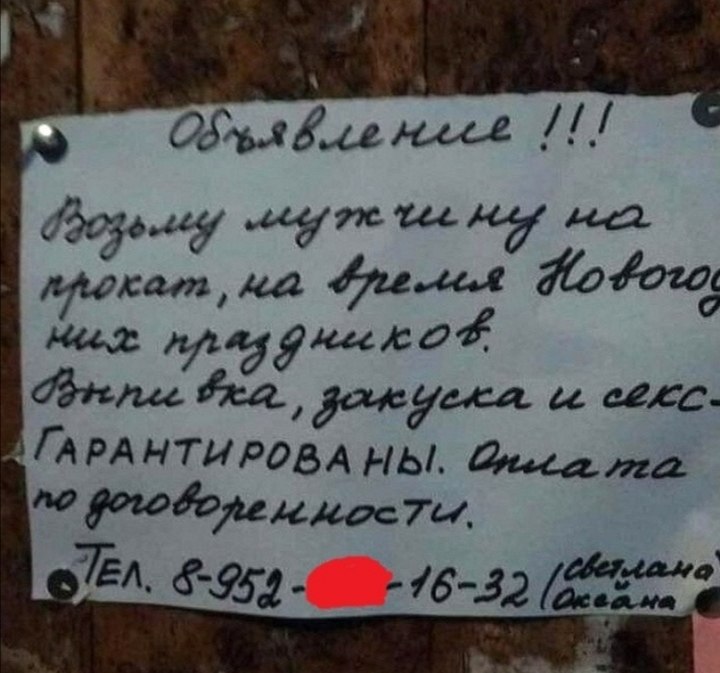 Объявление !!!
Возьму мужчину на
прокат, на время Новогод
них праздников.
Выпивка, закуска и секс-
ГАРАНТИРОВАНЫ. Оплата
по договоренности.
ТЕЛ. 8-952- -16-32 (Светлана
Оксана